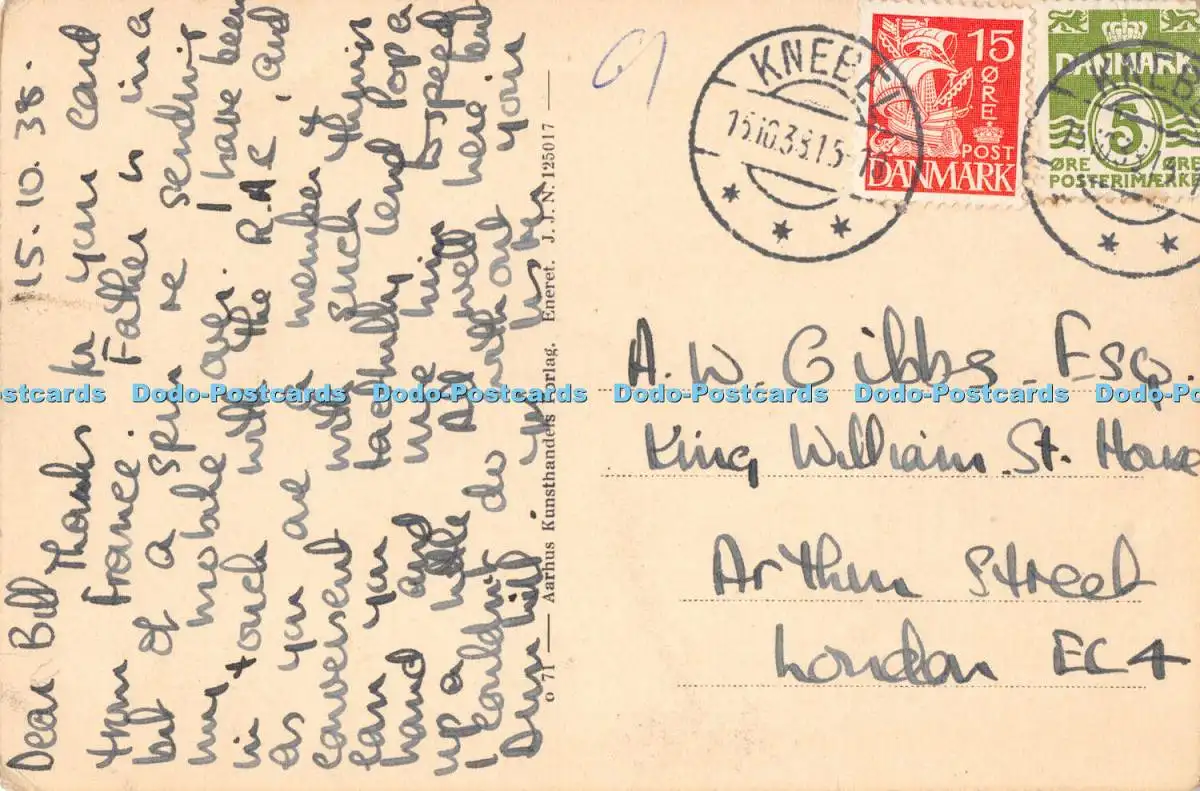 15.10.38.
Dear Bill
Thanks for your card
from France. Father is in a
bit of a spin re sending
my mobike over. I have been
in touch with the R.A.C, and
as you are a member &
conversant with such things
can you tactfully lend Popa
hand and give him & speed
up a little All well here but
I couldn't do without your
Dunhill.
o 71 — Aarhus Kunsthandels Forlag. Eneret. J. J. N. 125017 —
KNEBEL
15.10.38.15-16
15
ØRE
POST
DANMARK
DANMARK
5
ØRE ØRE
POSTERIMÆRKE
KNEB
A. W. Gibbs Esq.
King William St. House
Arthur Street
London EC4
Dodo-Postcards Dodo-Postcards Dodo-Postcards Dodo-Postcards Dodo-Postcards